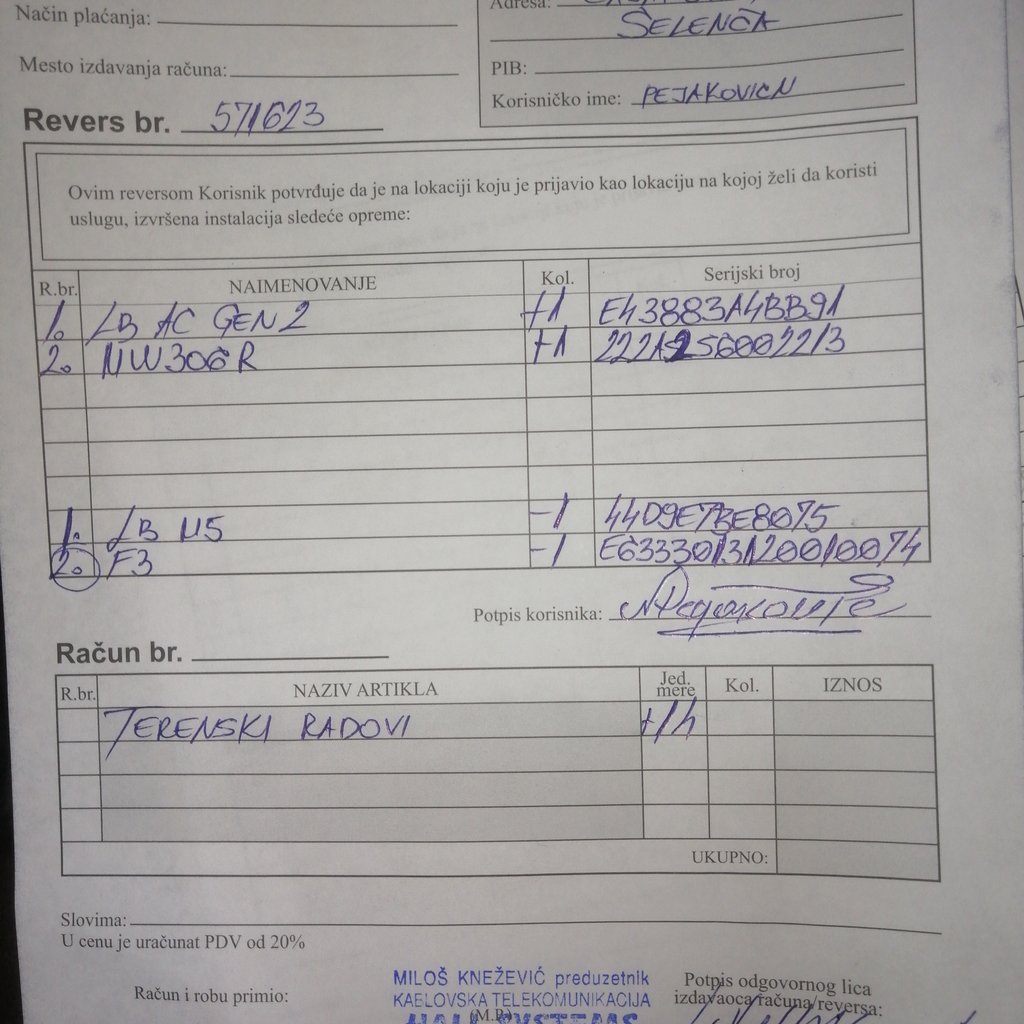 Način plaćanja:
Adresa:
ŠELENČA
Mesto izdavanja računa:
PIB:
Korisničko ime: PEJAKOVICN
Revers br. 571623
Ovim reversom Korisnik potvrđuje da je na lokaciji koju je prijavio kao lokaciju na kojoj želi da koristi
uslugu, izvršena instalacija sledeće opreme:
R.br. NAIMENOVANJE Kol. Serijski broj
1. LB AC GEN2 +1 E43883A4BB91
2. NW306R +1
1. LB M5 -1 44D9E7BE8075
2. F3 -1 E6333013120010074
Potpis korisnika:
Račun br.
R.br. NAZIV ARTIKLA Jed. mere Kol. IZNOS
TERENSKI RADOVI +1h
UKUPNO:
Slovima:
U cenu je uračunat PDV od 20%
Račun i robu primio:
MILOŠ KNEŽEVIĆ preduzetnik
KABLOVSKA TELEKOMUNIKACIJA
(M.P.)
Potpis odgovornog lica
izdavaoca računa/reversa: